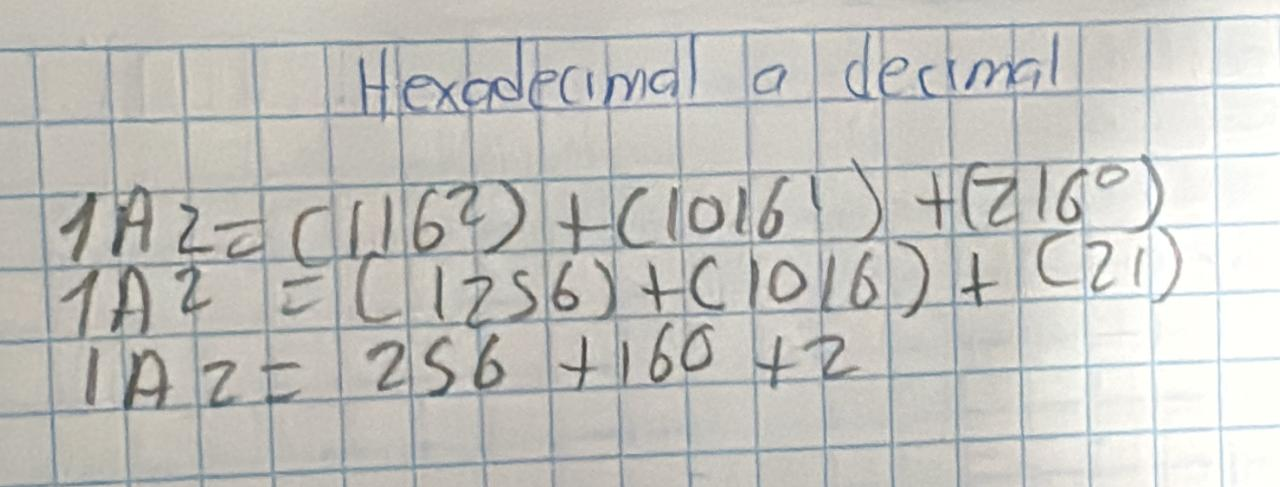 Hexadecimal a decimal
1A2 = (116²) + (1016¹) + (216⁰)
1A2 = (1256) + (1016) + (21)
1A2 = 256 + 160 + 2